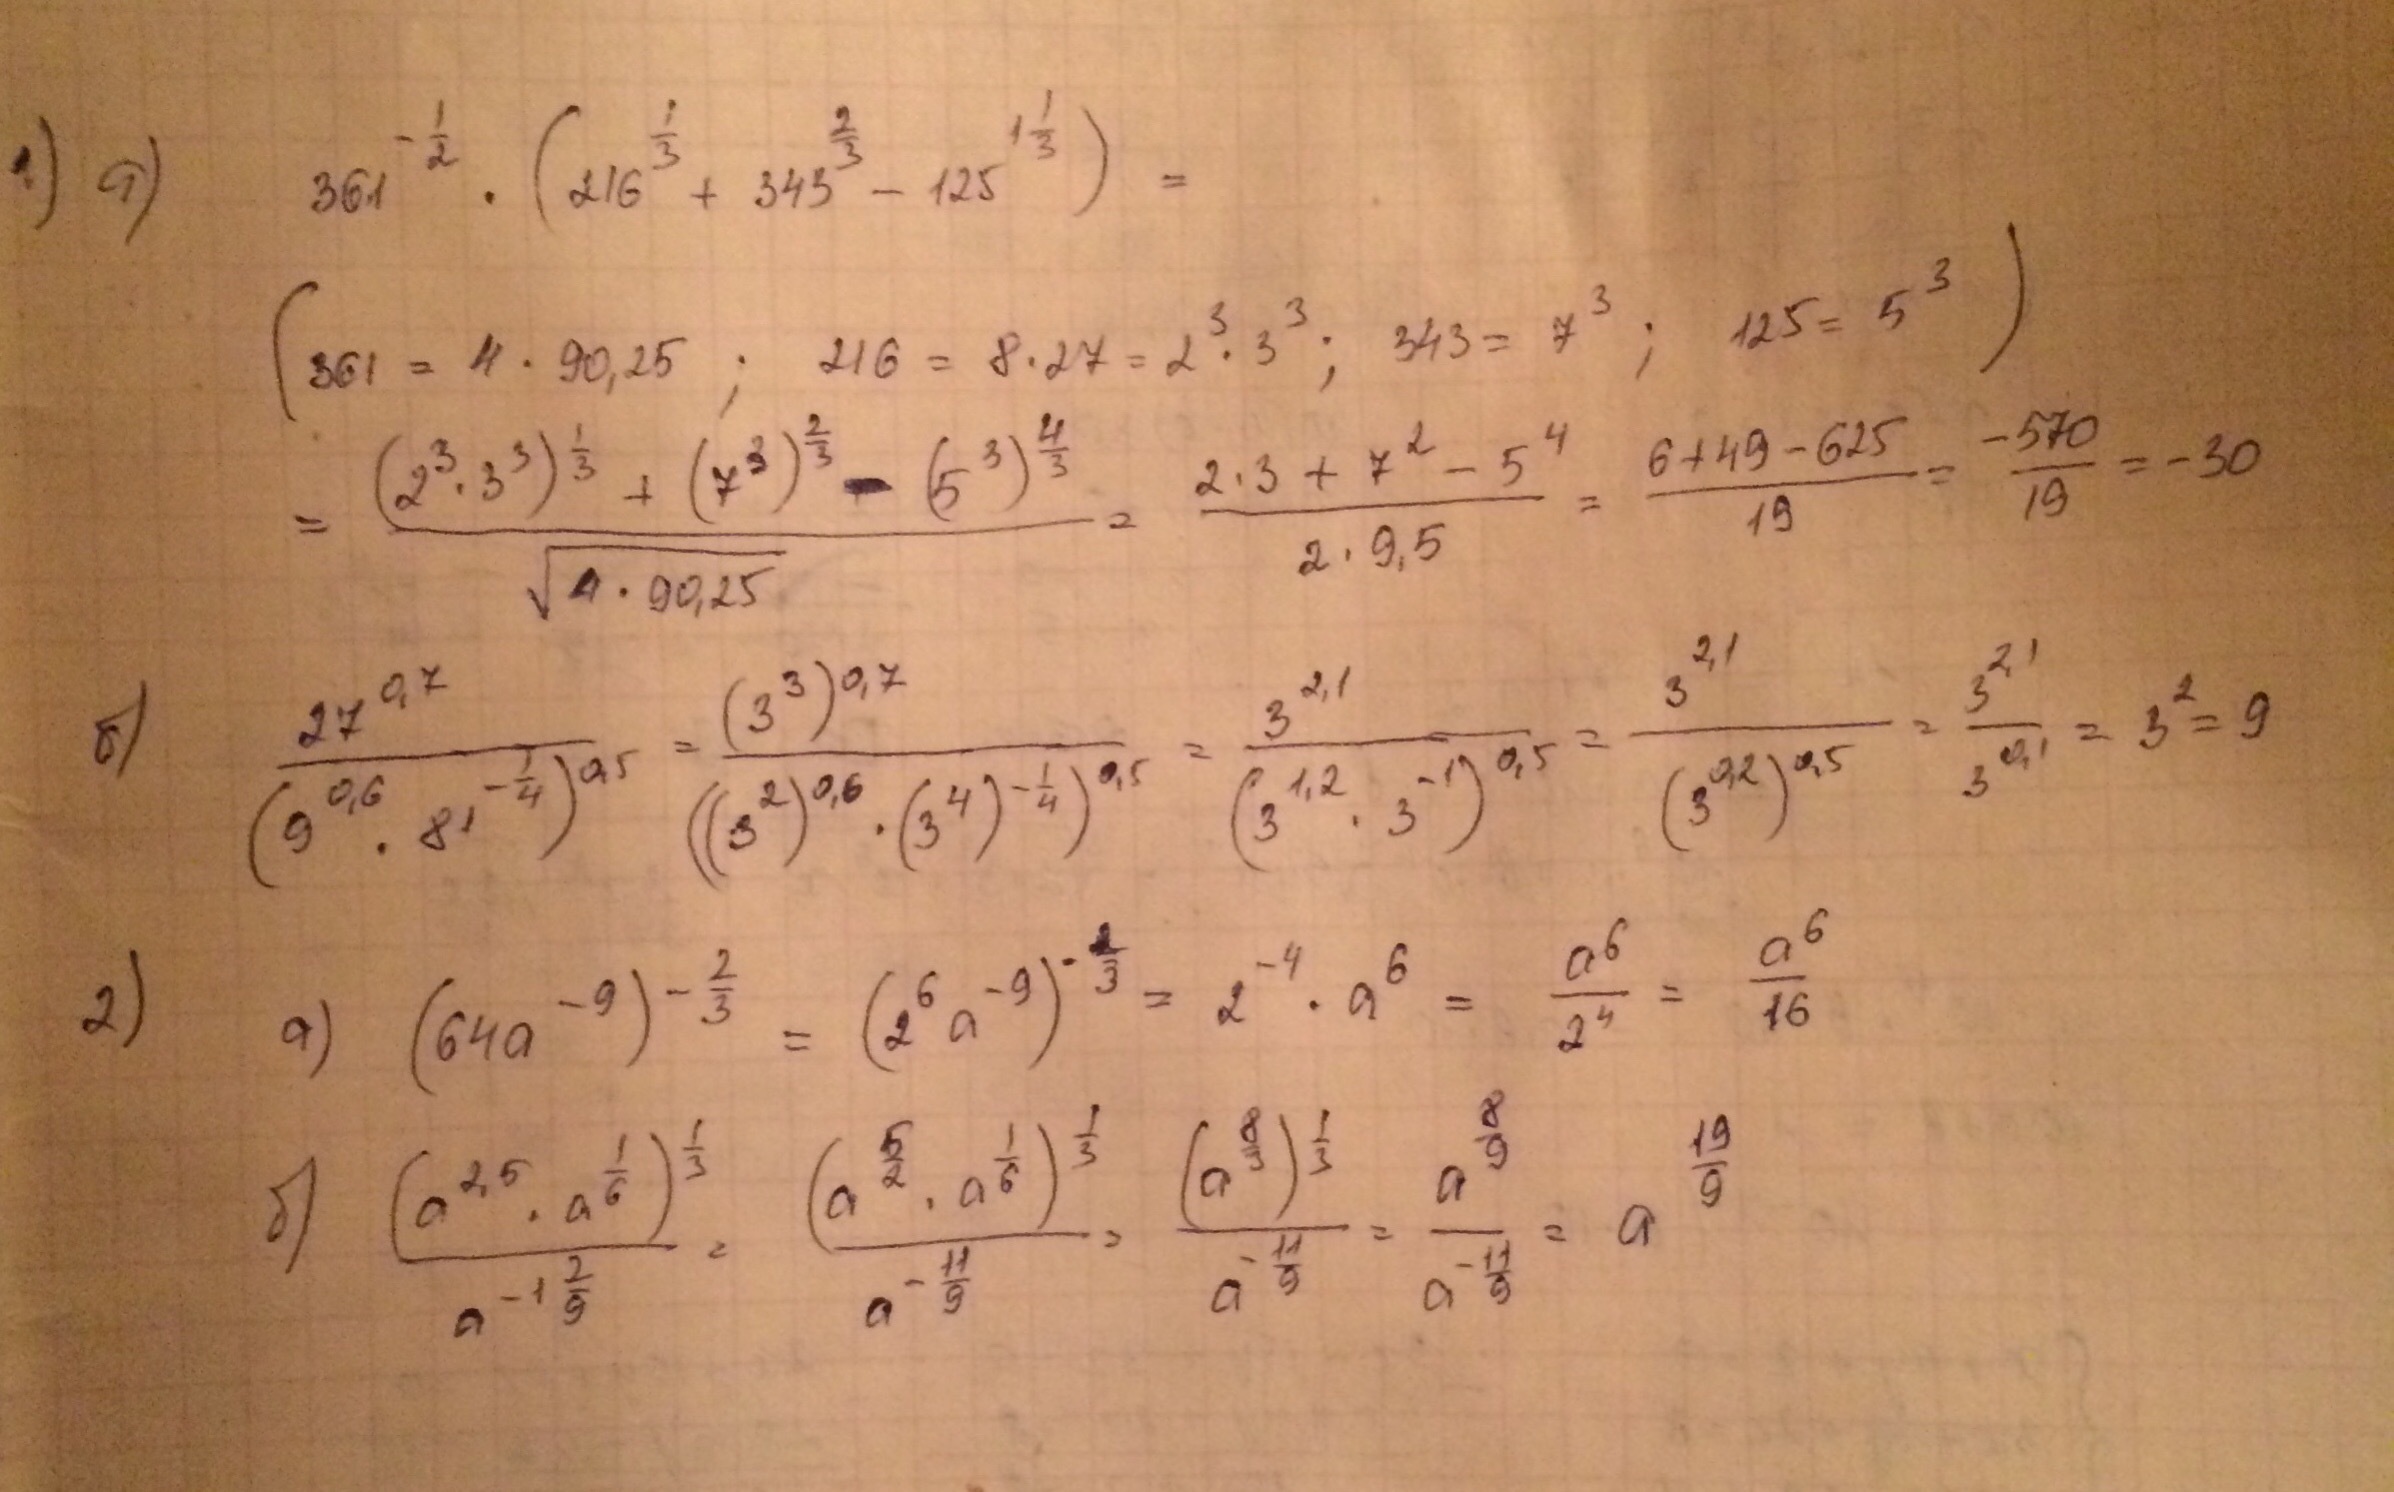 1) а) 361^{-\frac{1}{2}} · (216^{\frac{1}{3}} + 343^{\frac{2}{3}} - 125^{1\frac{1}{3}}) =
(361 = 4 · 90,25 ; 216 = 8 · 27 = 2^3 · 3^3 ; 343 = 7^3 ; 125 = 5^3)
= \frac{(2^3 · 3^3)^{\frac{1}{3}} + (7^3)^{\frac{2}{3}} - (5^3)^{\frac{4}{3}}}{\sqrt{4 · 90,25}} = \frac{2 · 3 + 7^2 - 5^4}{2 · 9,5} = \frac{6 + 49 - 625}{19} = \frac{-570}{19} = -30
б) \frac{27^{0,7}}{(9^{0,6} · 81^{-\frac{1}{4}})^{0,5}} = \frac{(3^3)^{0,7}}{((3^2)^{0,6} · (3^4)^{-\frac{1}{4}})^{0,5}} = \frac{3^{2,1}}{(3^{1,2} · 3^{-1})^{0,5}} = \frac{3^{2,1}}{(3^{0,2})^{0,5}} = \frac{3^{2,1}}{3^{0,1}} = 3^2 = 9
2) а) (64a^{-9})^{-\frac{2}{3}} = (2^6 a^{-9})^{-\frac{2}{3}} = 2^{-4} · a^6 = \frac{a^6}{2^4} = \frac{a^6}{16}
б) \frac{(a^{2,5} · a^{\frac{1}{6}})^{\frac{1}{3}}}{a^{-1\frac{2}{9}}} = \frac{(a^{\frac{5}{2}} · a^{\frac{1}{6}})^{\frac{1}{3}}}{a^{-\frac{11}{9}}} = \frac{(a^{\frac{8}{3}})^{\frac{1}{3}}}{a^{-\frac{11}{9}}} = \frac{a^{\frac{8}{9}}}{a^{-\frac{11}{9}}} = a^{\frac{19}{9}}